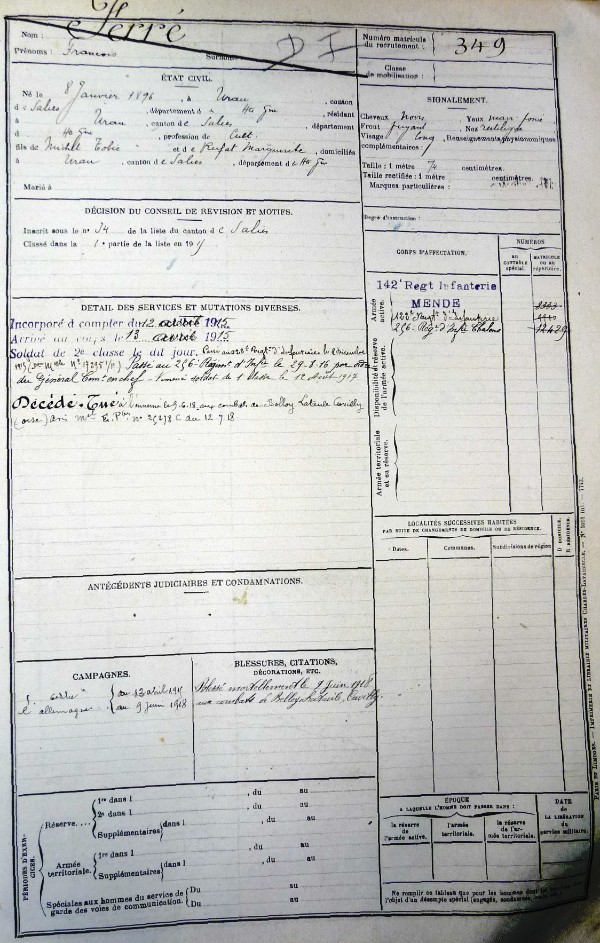 Nom : Ferré
Prénoms : François Surnoms
D I
Numéro matricule du recrutement : 349
Classe de mobilisation :
ÉTAT CIVIL.
Né le 8 Janvier 1896, à Urau, canton
d e Salies, département d Hte Gne, résidant
à Urau, canton de Salies, département
d Hte Gne, profession de Cult.
fils de Michel et de Marguerite, domiciliés
à Urau, canton de Salies, département d e Hte Gne
Marié à
SIGNALEMENT.
Cheveux Noirs Yeux
Front fuyant Nez rectiligne
Visage long Renseignements physionomiques
complémentaires :
Taille : 1 mètre 74 centimètres.
Taille rectifiée : 1 mètre centimètres.
Marques particulières :
Degré d'instruction :
DÉCISION DU CONSEIL DE RÉVISION ET MOTIFS.
Inscrit sous le n° 34 de la liste du canton d e Salies
Classé dans la 1e partie de la liste en 191
CORPS D'AFFECTATION.
NUMÉROS
AU CONTRÔLE spécial.
MATRICULE OU AU répertoire.
Armée active.
142e Regt Infanterie
MENDE
122e Regt d'Infanterie
256e Régt d'Infie 12429
Disponibilité et réserve de l'armée active.
Armée territoriale et sa réserve.
DETAIL DES SERVICES ET MUTATIONS DIVERSES.
Incorporé à compter du 12 avril 1915
Arrivé au corps le 13 avril 1915
Soldat de 2e classe le dit jour. Passé au 122e Regt d'Infanterie le 2 décembre
1915 Passé au 256e Régiment d'Infie le 29.8.16 par ordre
du Général Comt en chef. Nommé soldat de 1e classe le 12 Août 1917
Décédé. Tué à l'ennemi le 9.6.18 aux combats de Belloy Lataule Cuvilly
(oise) avis n° C du 12.7.18
LOCALITÉS SUCCESSIVES HABITÉES
PAR SUITE DE CHANGEMENTS DE DOMICILE OU DE RÉSIDENCE.
Dates.
Communes.
Subdivisions de région
D. DOMICILE.
R. RÉSIDENCE.
ANTÉCÉDENTS JUDICIAIRES ET CONDAMNATIONS.
CAMPAGNES.
l'allemagne
du 12 avril 1915
au 9 juin 1918
BLESSURES, CITATIONS,
DÉCORATIONS, ETC.
Blessé mortellement le 9 Juin 1918
aux combats de Belloy Lataule, Cuvilly.
PÉRIODES D'EXERCICES.
Réserve....
1re dans l , du au
2e dans l , du au
Supplémentaires dans l , du au
Armée territoriale.
1re dans l , du au
Supplémentaires dans l , du au
Spéciales aux hommes du service de garde des voies de communication.
Du au
Du au
ÉPOQUE
A LAQUELLE L'HOMME DOIT PASSER DANS :
la réserve de l'armée active.
l'armée territoriale.
la réserve de l'armée territoriale.
DATE de LA LIBÉRATION du service militaire.
Ne remplir ce tableau que pour les hommes
l'objet d'un décompte spécial (engagés,
PARIS ET LIMOGES. — IMPRIMERIE ET LIBRAIRIE MILITAIRES CHARLES-LAVAUZELLE.